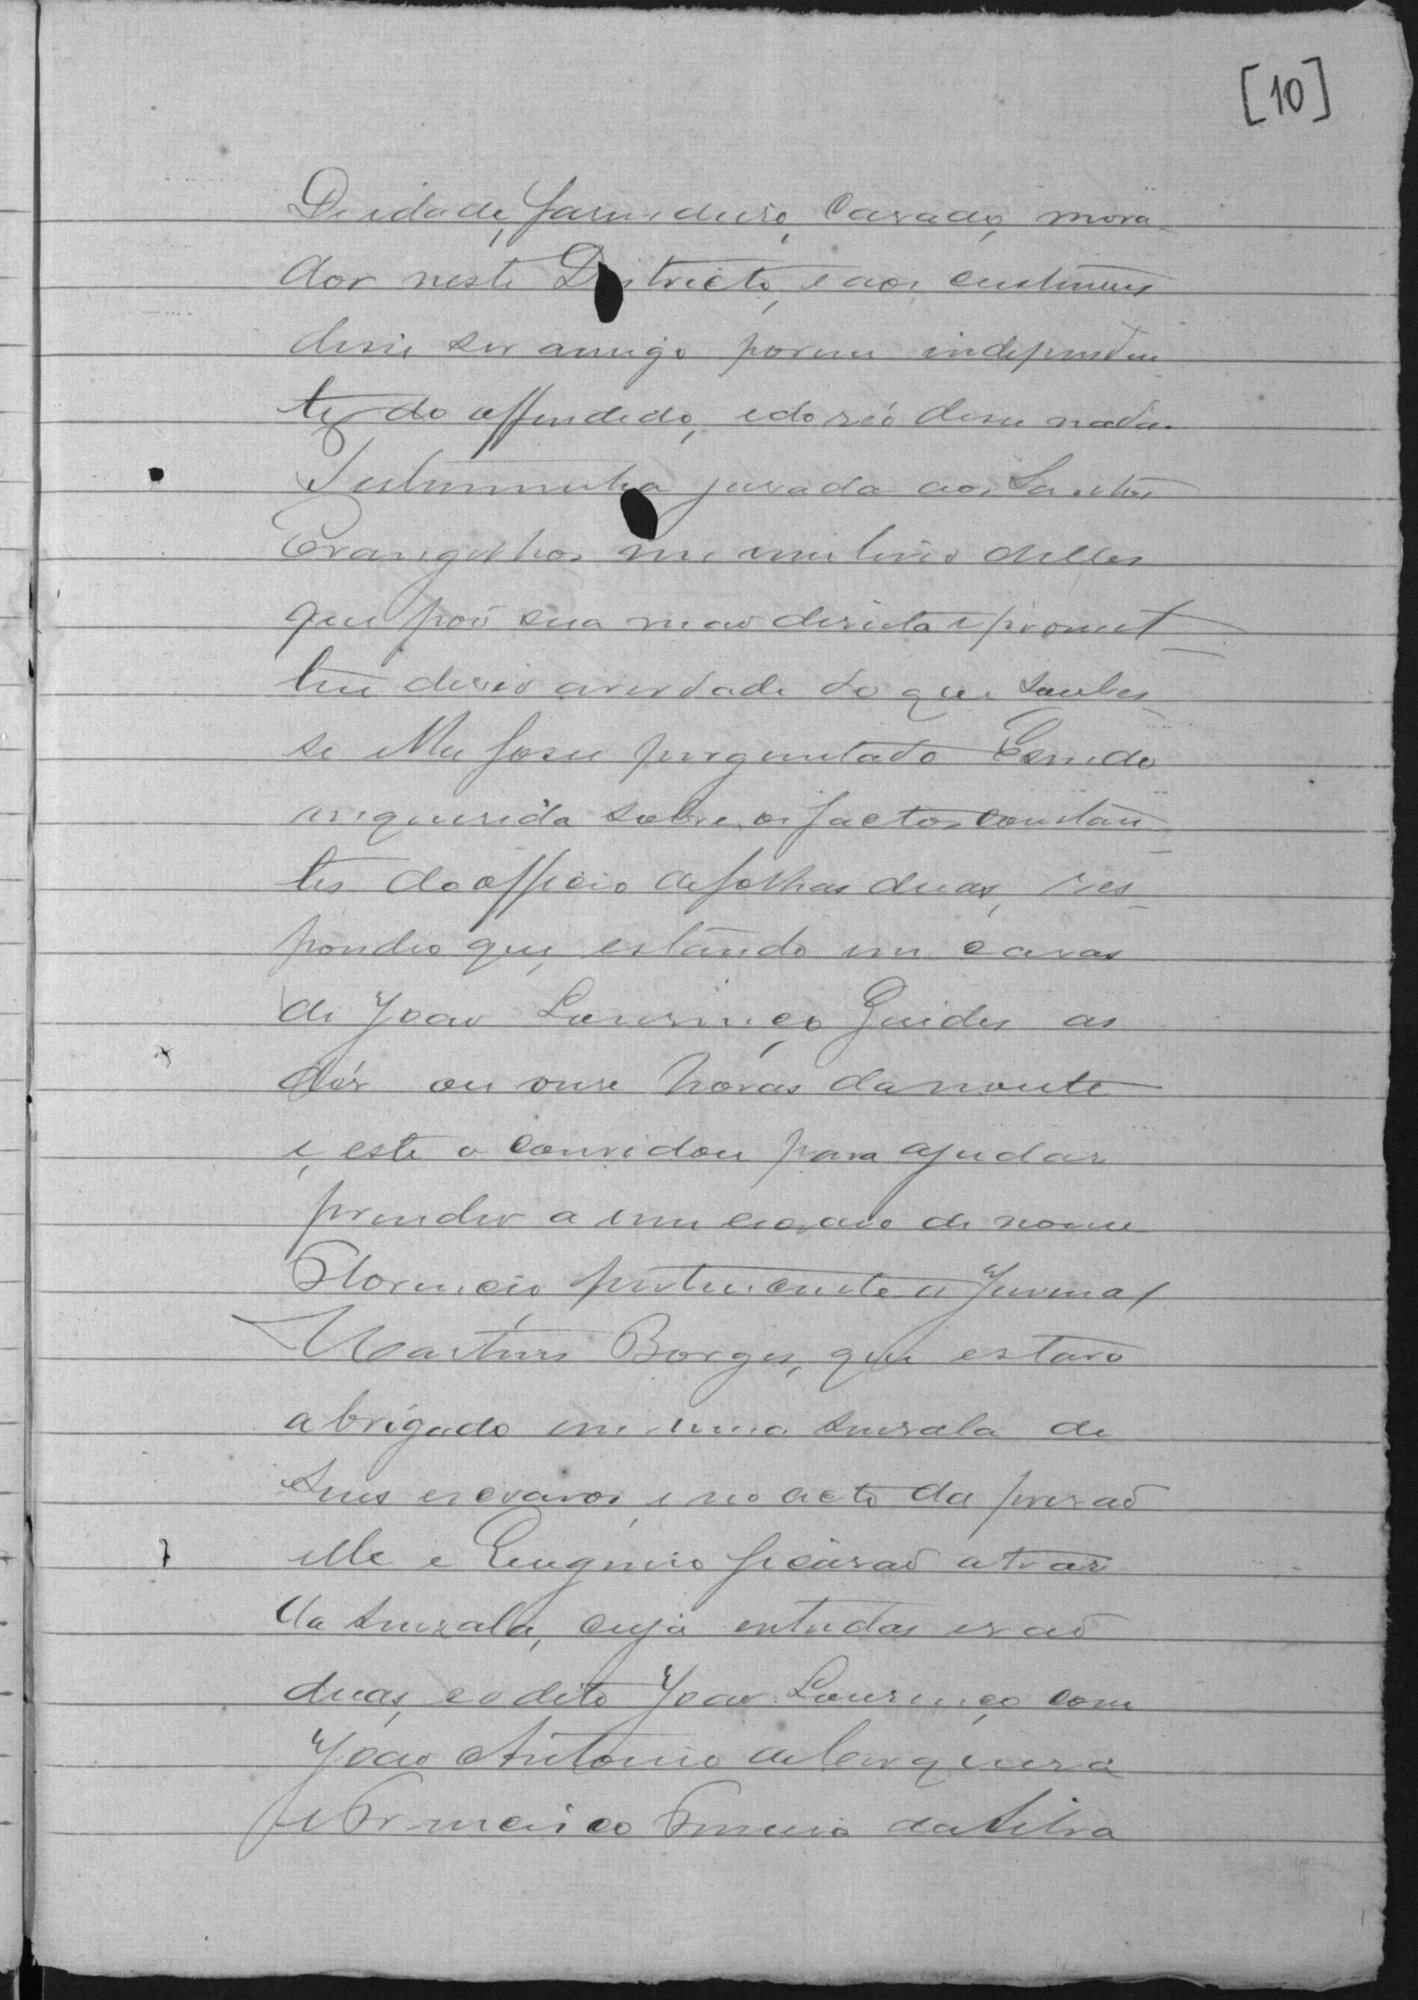 [10]
De idade, farmedeiro, casado, mora-
dor neste Districto, e aos custumes
disse ser amigo porem independen
te do offendido, e do réo disse nada.
Testemunha jurada aos Santos
Evangelhos em um livro delles
que pôs sua mão direita e promet-
teu diser a verdade do que soubes-
se e lhe fosse perguntado E sendo
inquerida sobre os factos constan-
tes do officio de folhas duas, res-
pondeo que, estando em casas
de João Lourenço Guides as
dés ou onse horas da noute
e, este o convidou para ajudar
prender a um escravo de nome
Florencio, pertencente a Juvenal
Martins Borges, que estava
abrigado em uma sensala de
seus escravos, e no acto da prisaõ
elle e Eugenio ficaraõ atras
da senzala, cuja entradas eraõ
duas, e o dito João Lourenço com
João Antonio de Cerqueira
e Francisco Ferreira da Silva